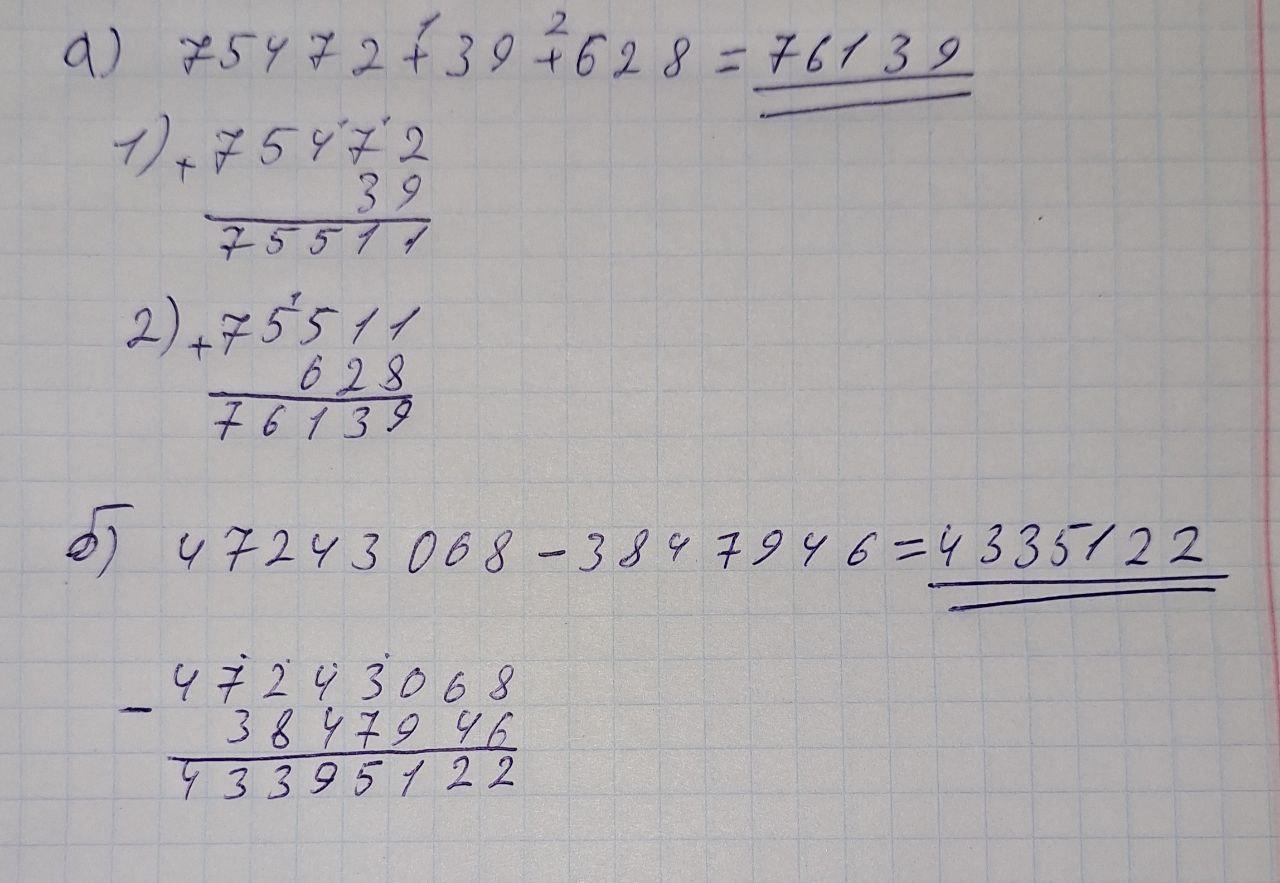 а) 75472 + 39 + 628 = 76139
1 2
1) + 75472
39
75511
2) + 75511
1
628
76139
б) 47243068 - 3847946 = 4335122
- 47243068
3847946
43395122